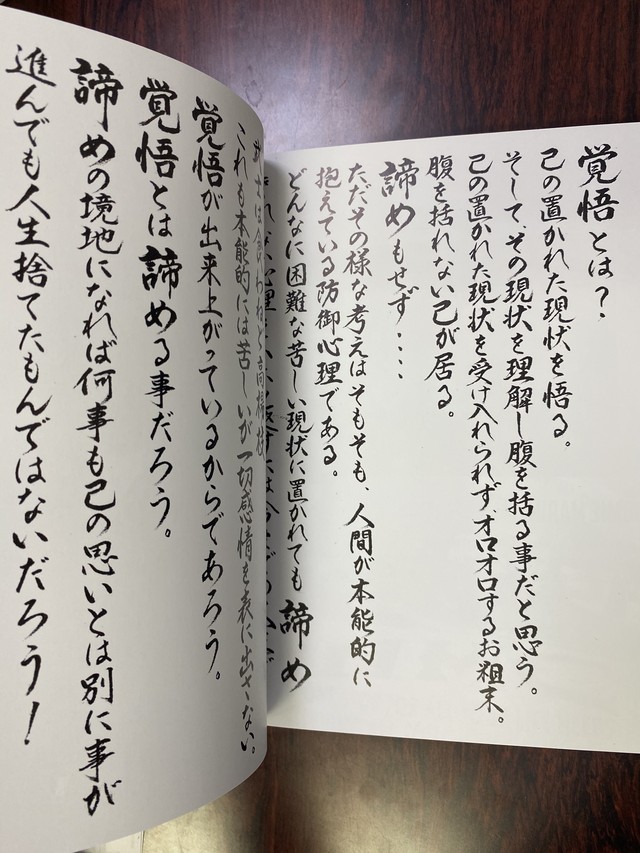 覚悟とは？
己の置かれた現状を悟る。
そして、その現状を理解し腹を括る事だと思う。
己の置かれた現状を受け入れられず、オロオロするお粗末。
腹を括れない己が居る。
諦めもせず・・・
ただその様な考えはそもそも、人間が本能的に
抱えている防御心理である。
どんなに困難な苦しい現状に置かれても諦め
武士は食わねど高楊枝
これも本能的には苦しいが一切感情を表に出さない。
覚悟が出来上がっているからであろう。
覚悟とは諦める事だろう。
諦めの境地になれば何事も己の思いとは別に事が
進んでも人生捨てたもんではないだろう！